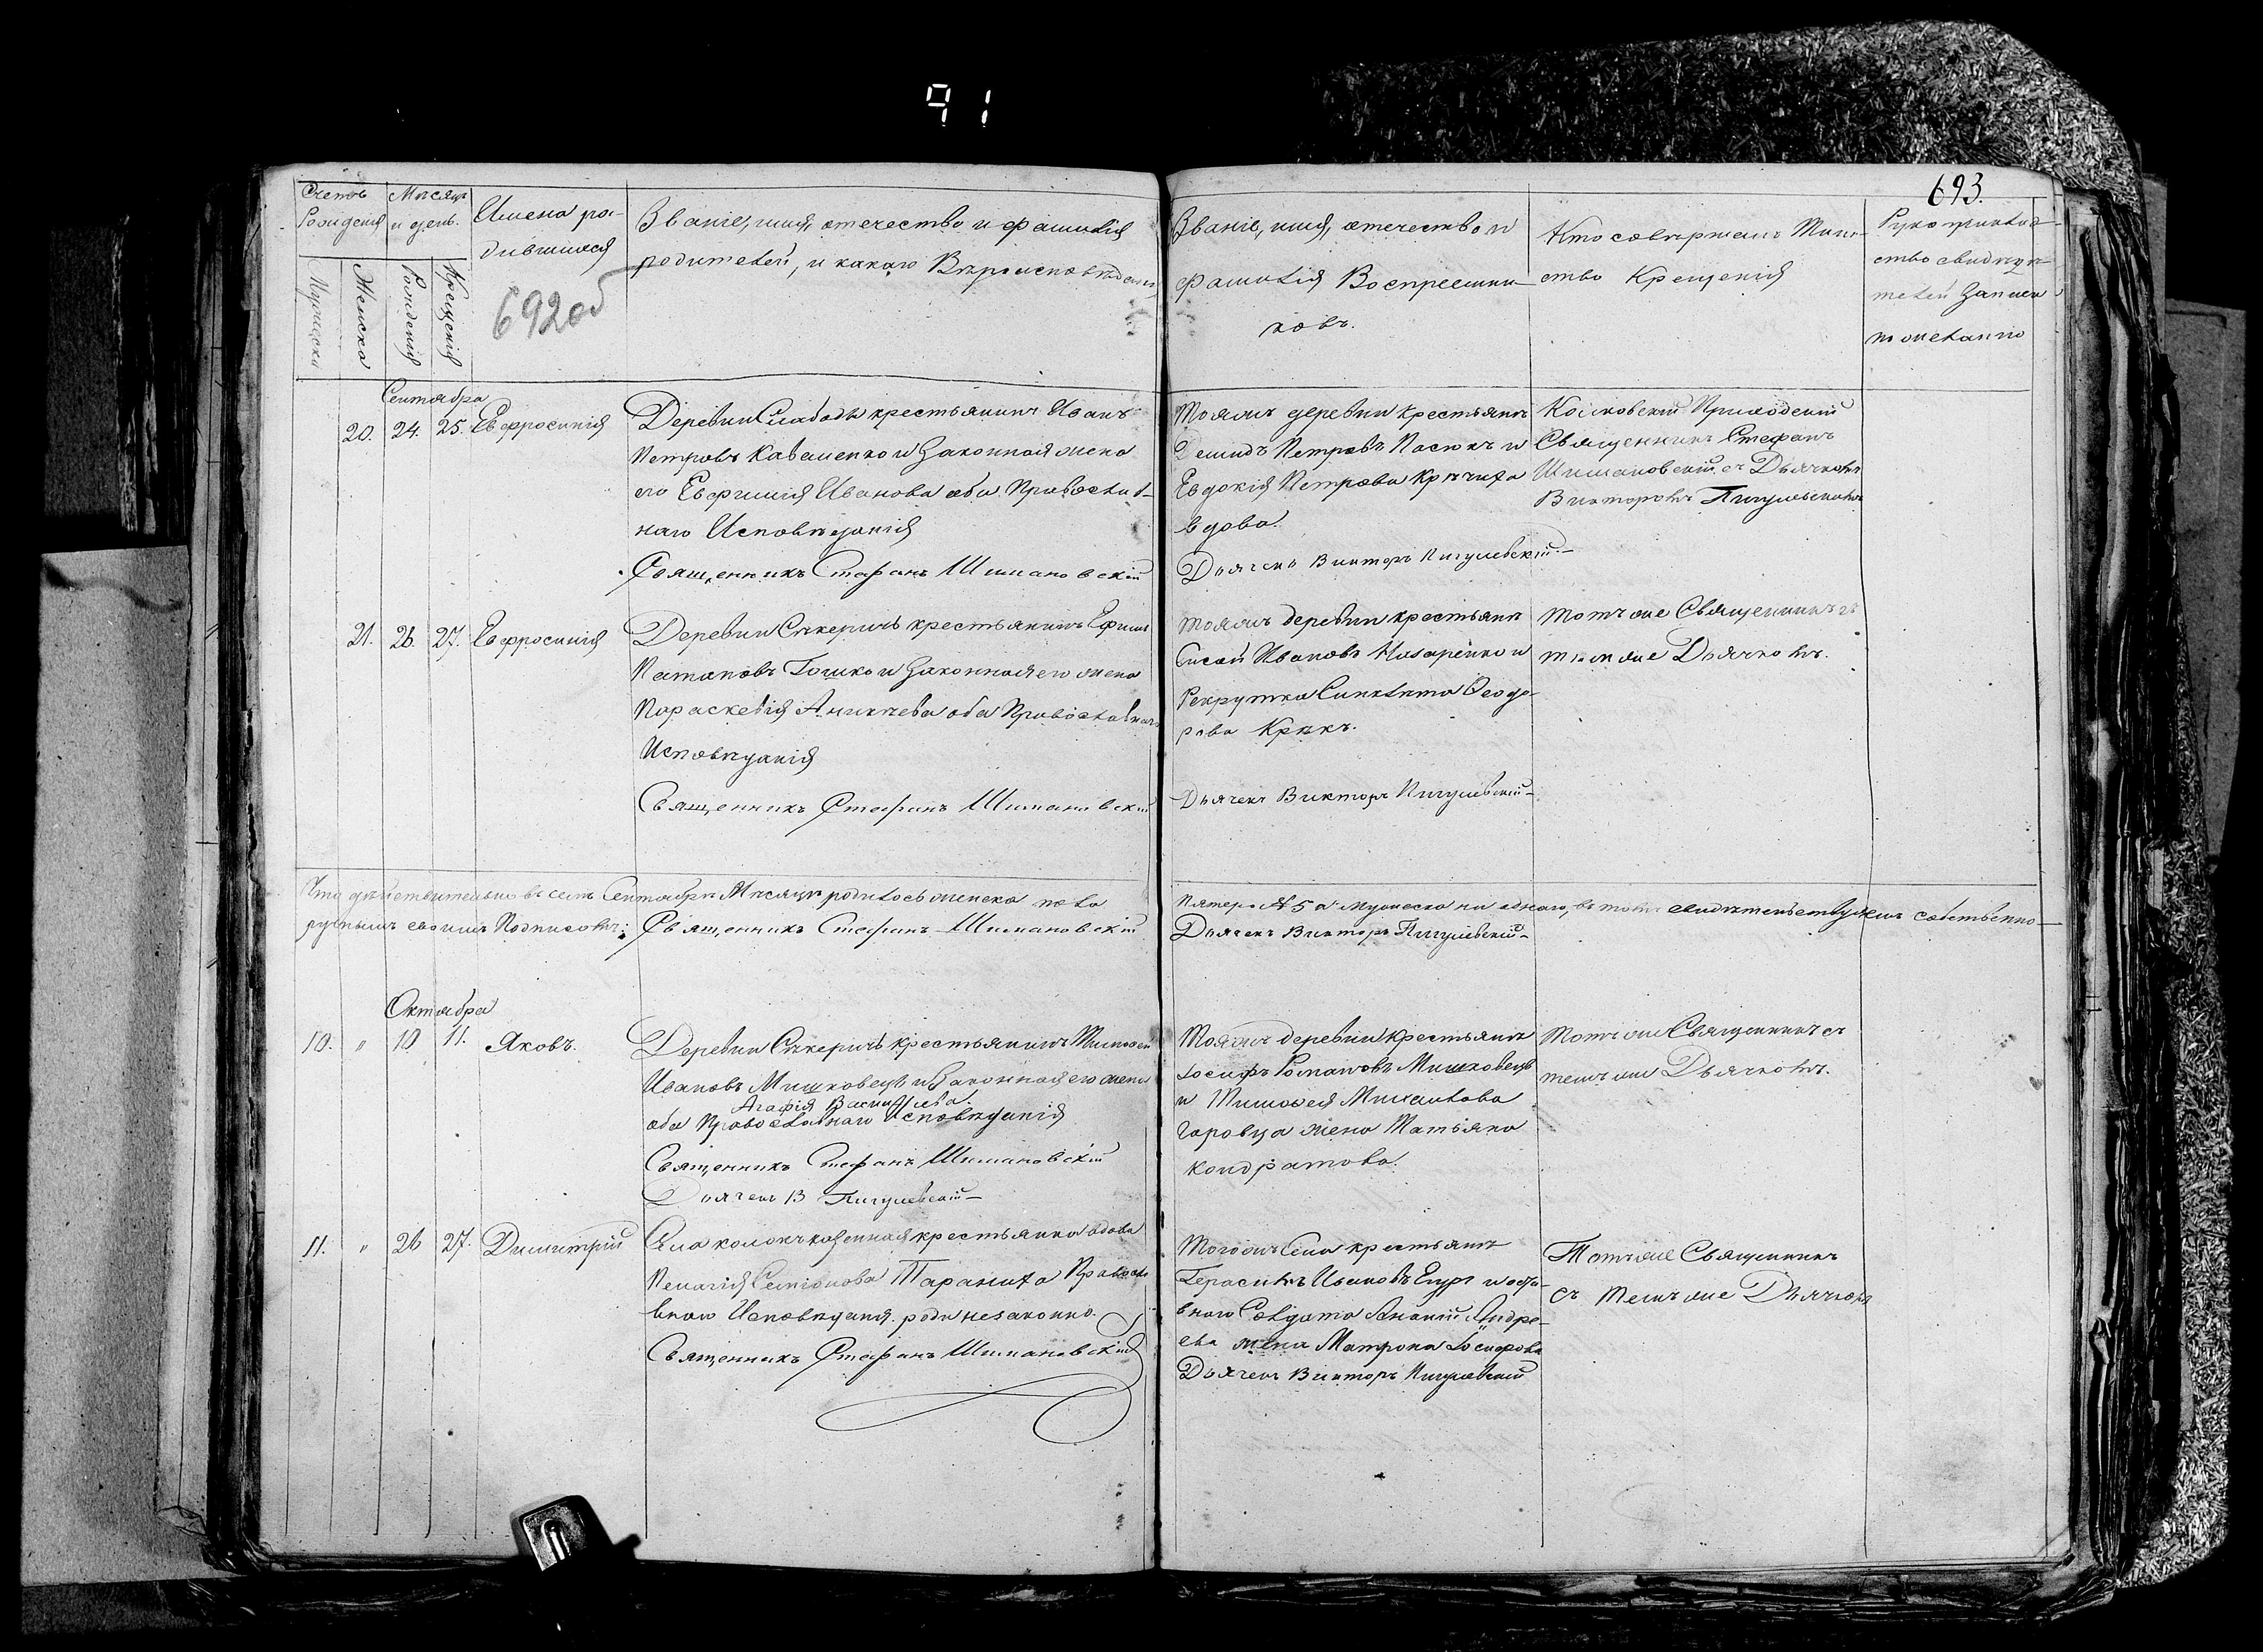 91
693.
Счетъ
Рожденія
Мѣсяцъ
и день.
Мужеска
Женска
Рожденія
Крещенія
Имена ро-
дившихся
692об
Званіе, имя, отечество и фамилія
родителей, и какого Вѣроисповѣданія
Званіе, имя, отечество и
фамилія Воспреемни-
ковъ.
Кто совершалъ Таин-
ство Крещенія
Рукоприклад-
ство свидѣте-
телей записи
по желанію
Сентября
20. 24. 25. Евфросинія
Деревни Слободы крестьянинъ Иванъ
Петровъ Коваленко и Законная жена
его Евфимія Иванова оба Православ-
наго Исповѣданія
Священникъ Стефанъ Шимановскій
Тояжъ деревни крестьянинъ
Демидъ Петровъ Пасюкъ и
Евдокія Петрова Кръчиха
вдова.
Дьячекъ Викторъ Пигулевскій
Приходскій
Священникъ Стефанъ
Шимановскій съ Дьячкомъ
Викторомъ Пигулевскимъ
21. 26. 27. Евфросинія
Деревни Сѣкеричъ крестьянинъ Ефимъ
Потаповъ Гошко и Законная его жена
Параскевія Аникіева оба Православнаго
Исповѣданія
Священникъ Стефанъ Шимановскій
тояжъ деревни крестьянинъ
Сисой Ивановъ Назаренко и
Рекрутка Синклита Ѳеодо-
рова Крѣкъ.
Дьячекъ Викторъ Пигулевскій
тотъ же Священникъ съ
тѣмъ же Дьячкомъ.
Что дѣйствительно въ семъ Сентябрѣ Мѣсяцѣ родилось женска пола
ручнымъ своимъ Подписомъ: Священникъ Стефанъ Шимановскій
Пятеро № 5 а мужеска ни одного, въ томъ свидѣтельствуемъ собственно-
Дьячекъ Викторъ Пигулевскій
Октября
10. " 10 11. Яковъ.
Деревни Сѣкеричъ крестьянинъ Тимоѳей
Ивановъ Мишковецъ и Законная его жена
Агафія Васильева.
оба Православнаго Исповѣданія
Священникъ Стефанъ Шимановскій
Дьячекъ В Пигулевскій
Тояжъ деревни крестьянинъ
Іосифъ Романовъ Мишковецъ
и Тимоѳея Михайлова
Горовца жена Татьяна
Кондратова.
Тотъ же Священникъ съ
темъ же Дьячкомъ.
11. " 26 27. Димитрій
Села крестьянка вдова
Пелагія Семіонова Тараниха Правосла
внаго Исповѣданія. роди незаконно.
Священникъ Стефанъ Шимановскій
Тогожъ Села крестьянинъ
Герасимъ Ивановъ
внаго Солдата Ананія Андре-
ева жена Матрона Іосифова
Дьячекъ Викторъ Пигулевскій
Тотъ же Священникъ
съ темъ же Дьячкомъ